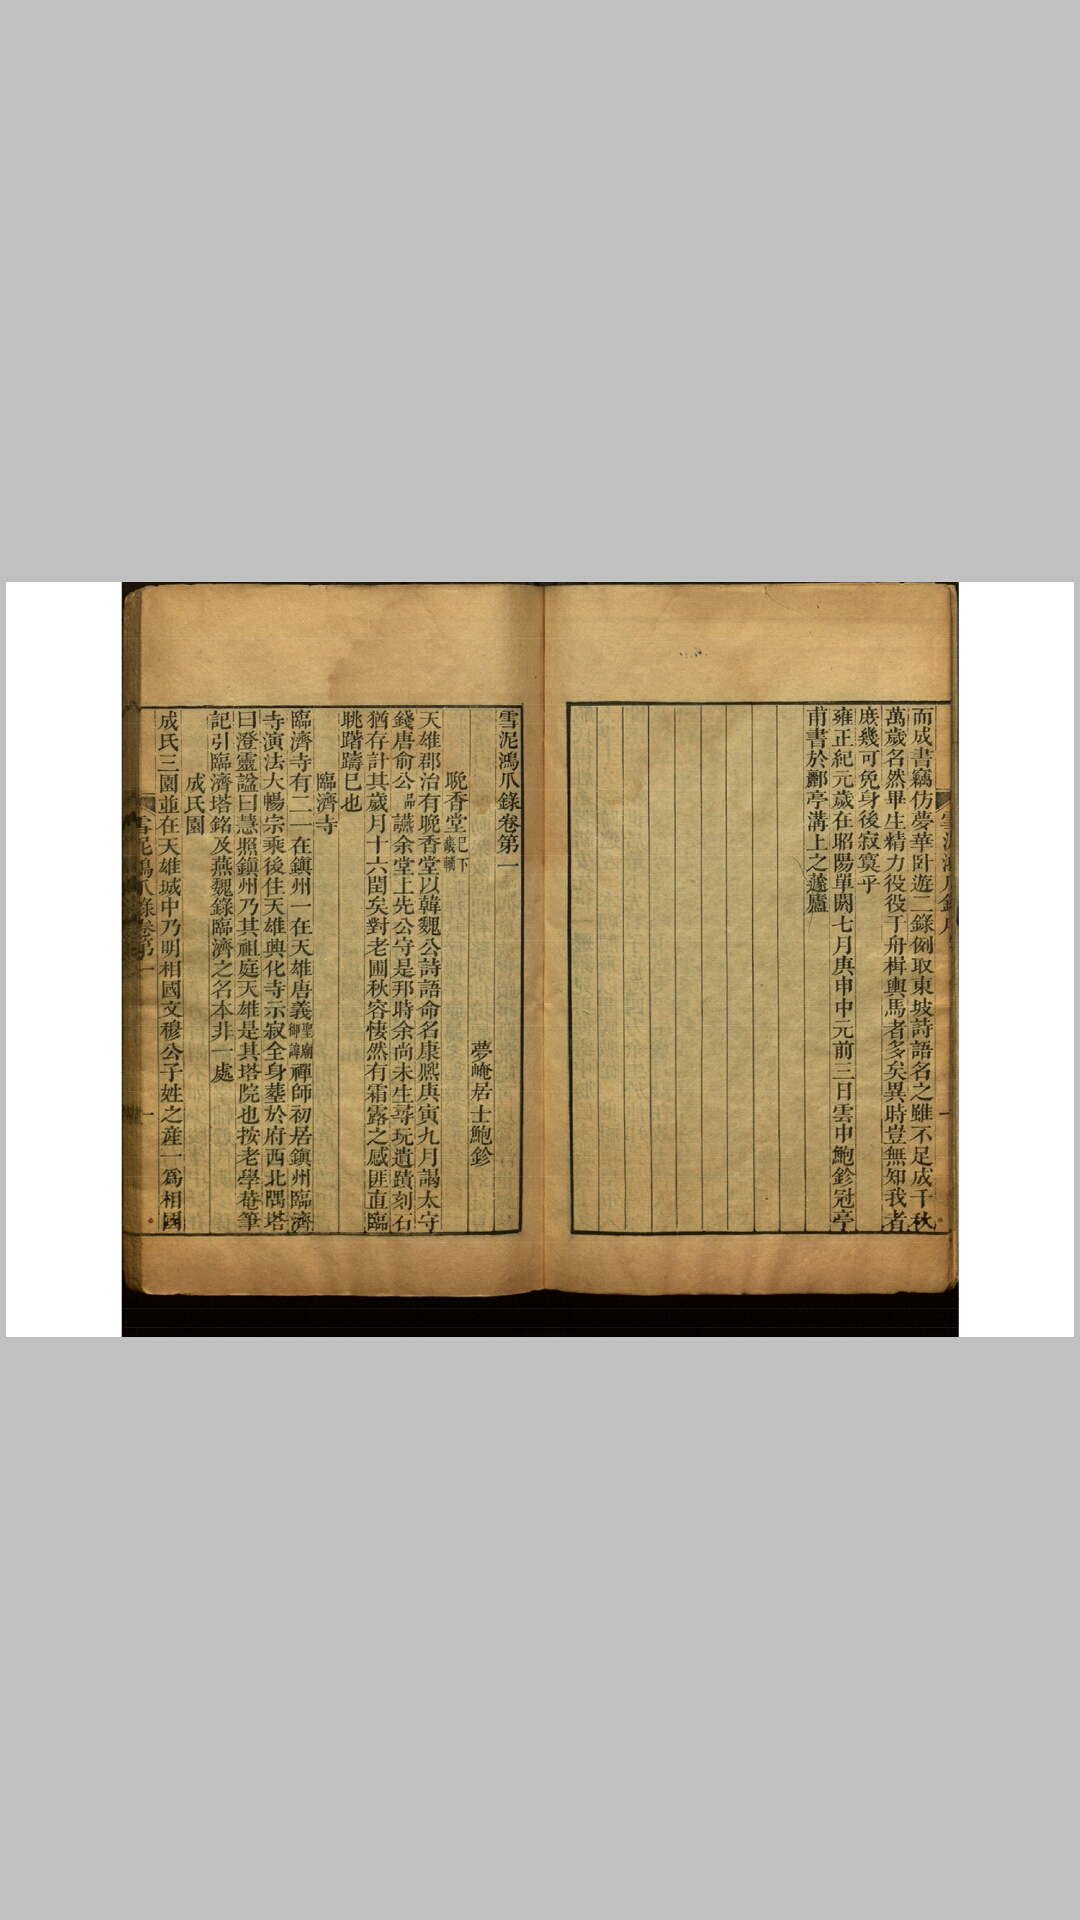 而成書竊仿夢華卧遊二錄例取東坡詩語名之雖不足成千秋
萬歲名然畢生精力役役于舟楫輿馬者多矣異時豈無知我者
庶幾可免身後寂寞乎
雍正紀元歲在昭陽單閼七月庚申中元前三日雲中鮑鉁冠亭
甫書於酈亭溝上之蘧廬
雪泥鴻爪錄卷第一
夢崦居士鮑鉁
晩香堂已下畿輔
天雄郡治有晚香堂以韓魏公詩語命名康熈庚寅九月謁太守
錢唐俞公品讌余堂上先公守是邦時余尚未生尋玩遺蹟刻石
猶存計其歲月十六閏矣對老圃秋容悽然有霜露之感匪直臨
眺躊躇已也
臨濟寺
臨濟寺有二一在鎮州一在天雄唐義聖廟御諱禪師初居鎮州臨濟
寺演法大暢宗乘後住天雄興化寺示寂全身塟於府西北隅塔
曰澄靈諡曰慧照鎮州乃其祖庭天雄是其塔院也按老學菴筆
記引臨濟塔銘及燕魏錄臨濟之名本非一處
成氏園
成氏三園並在天雄城中乃明相國文穆公子姓之產一爲相國
雪泥鴻爪錄卷第一
一